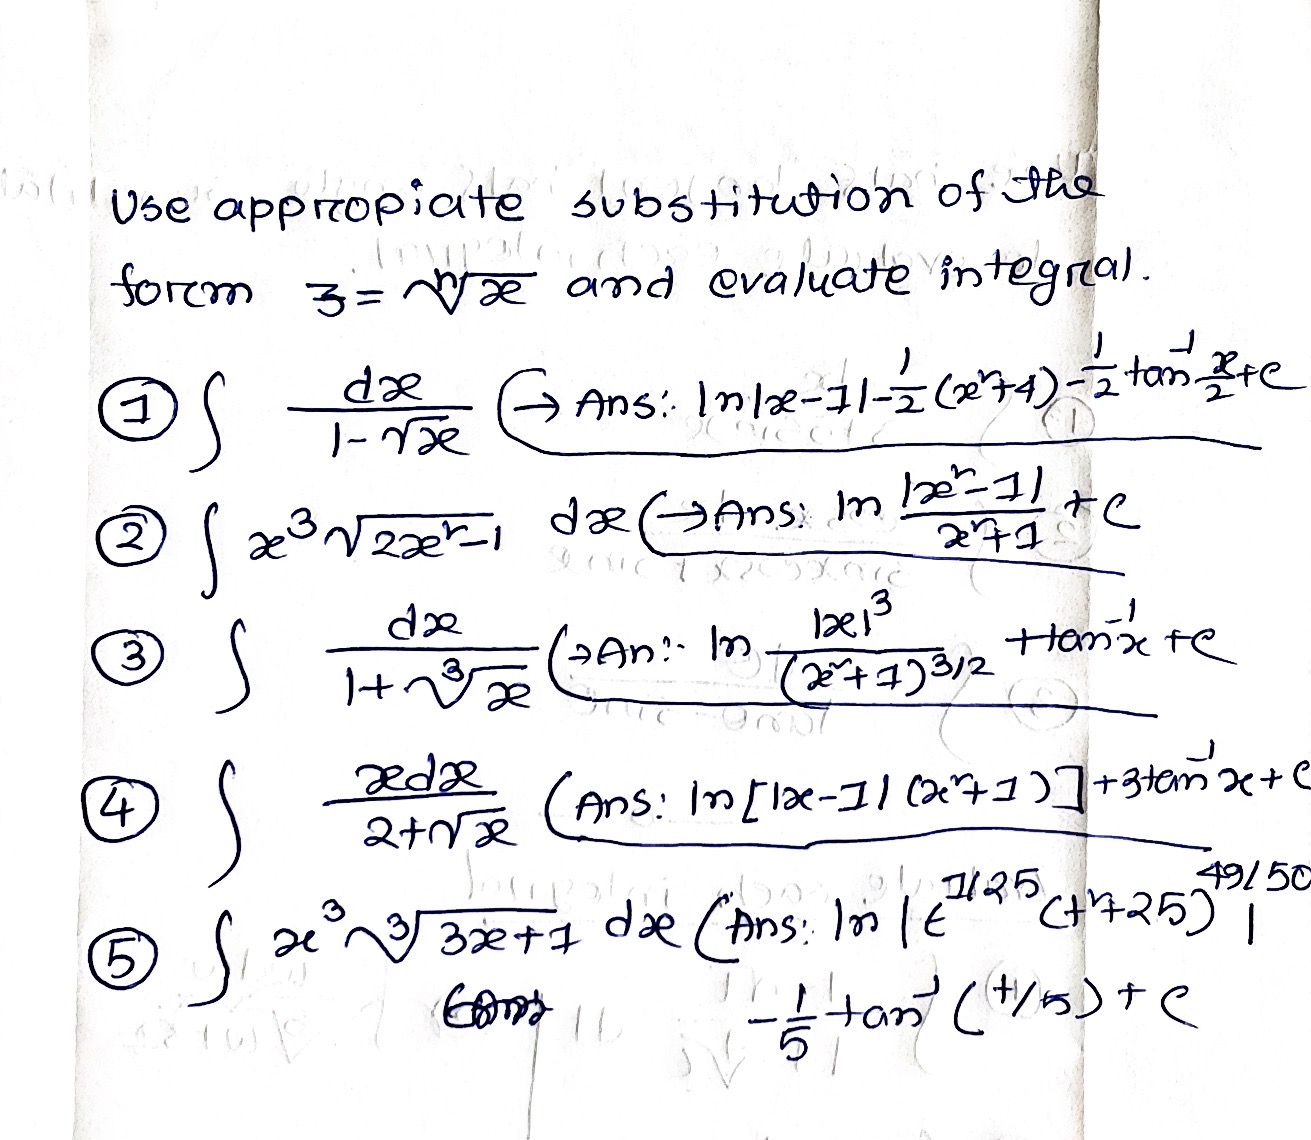 Use appropiate substitution of the
form z = ⁿ√x and evaluate integral.
① ∫ dx/(1-√x) (→ Ans: ln|x-1| - 1/2 (x²+4) - 1/2 tan⁻¹ x/2 + c
② ∫ x³√(2x²-1) dx (→ Ans: ln |x²-1|/(x²+1) + c
③ ∫ dx/(1+∛x) (→ An: ln |x|³/(x²+1)^3/2 + tan⁻¹x + c
④ ∫ xdx/(2+√x) (Ans: ln [|x-1| (x²+1)] + 3tan⁻¹x + c
⑤ ∫ x³ ∛(3x+1) dx (Ans: ln |t^1/25 (t²+25)^49/50|
- 1/5 tan⁻¹ (t/5) + c